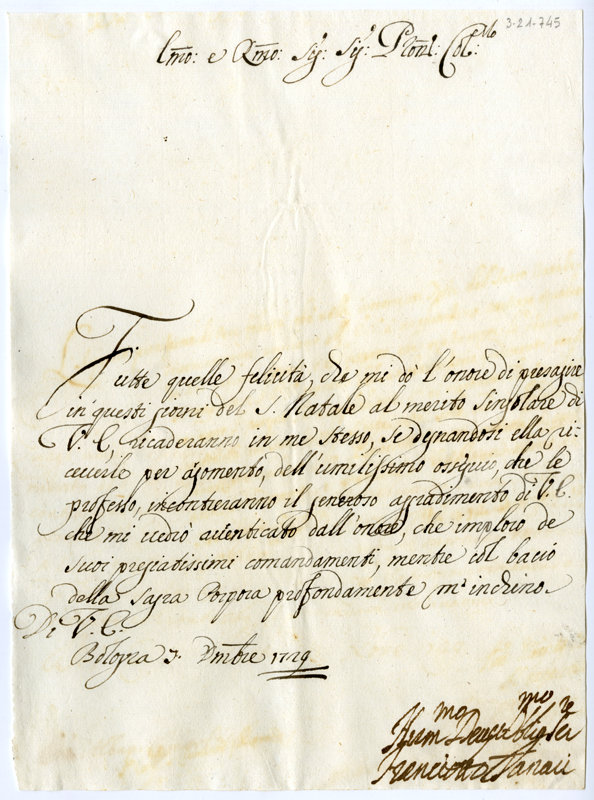 3-21-745
Emo: e Rmo: Sig:r Sig:r Pron: Col:mo
Tutte quelle felicità, che mi dò l'onore di presagire
in questi giorni del S. Natale al merito singolare di
V.E. ricaderanno in me stesso, se degnandosi ella ri-
ceverle per argomento, dell'umilissimo ossequio, che le
professo, incontreranno il generoso aggradimento di V.E.
che mi vedrò autenticato dall'onore, che imploro de
suoi pregiatissimi comandamenti, mentre col bacio
della Sagra Porpora profondamente m'inchino.
Di V.E.
Bologna 7. Dmbre 1729
Hummo Devmo Obligo Ser.re
Tanari